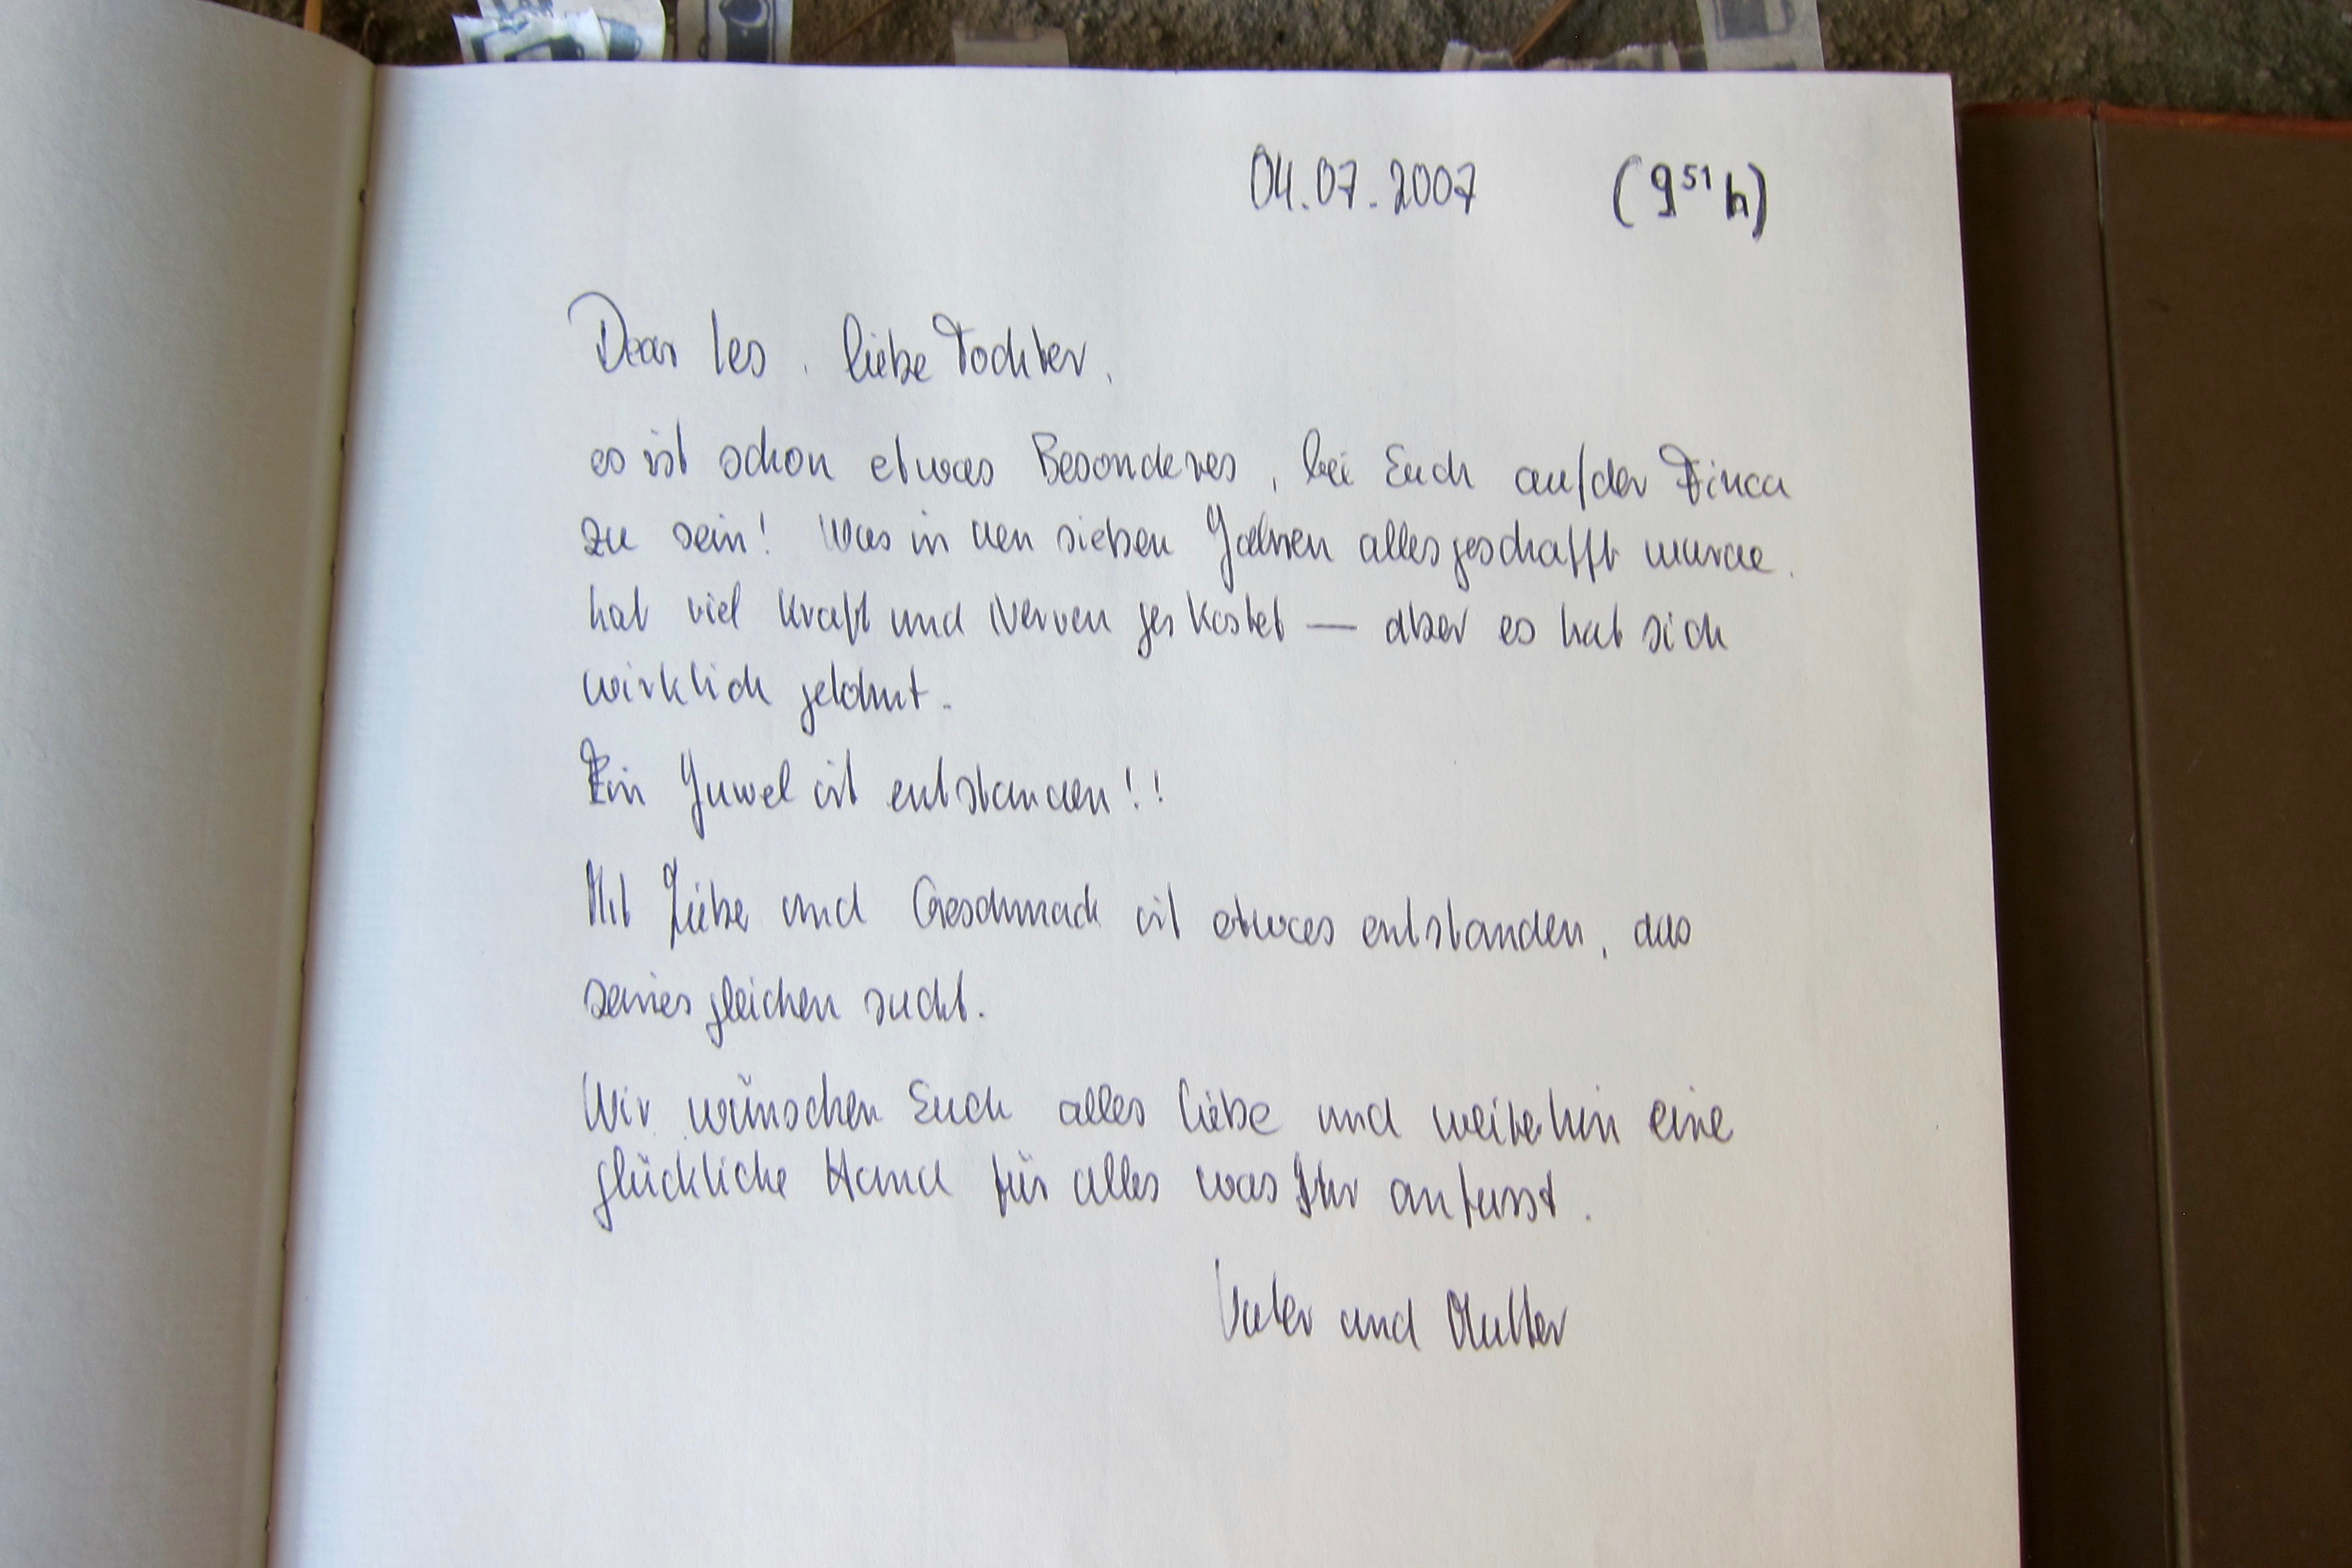 04.07.2007 (9⁵¹h)
Dear Les, liebe Tochter,
es ist schon etwas Besonderes, bei Euch auf der Finca
zu sein! Was in den sieben Jahren alles geschafft wurde,
hat viel Kraft und Nerven gekostet — aber es hat sich
wirklich gelohnt.
Ein Juwel ist entstanden!!
Mit Liebe und Geschmack ist etwas entstanden, das
seinesgleichen sucht.
Wir wünschen Euch alles Liebe und weiterhin eine
glückliche Hand für alles was Ihr anfasst.
Vater und Mutter